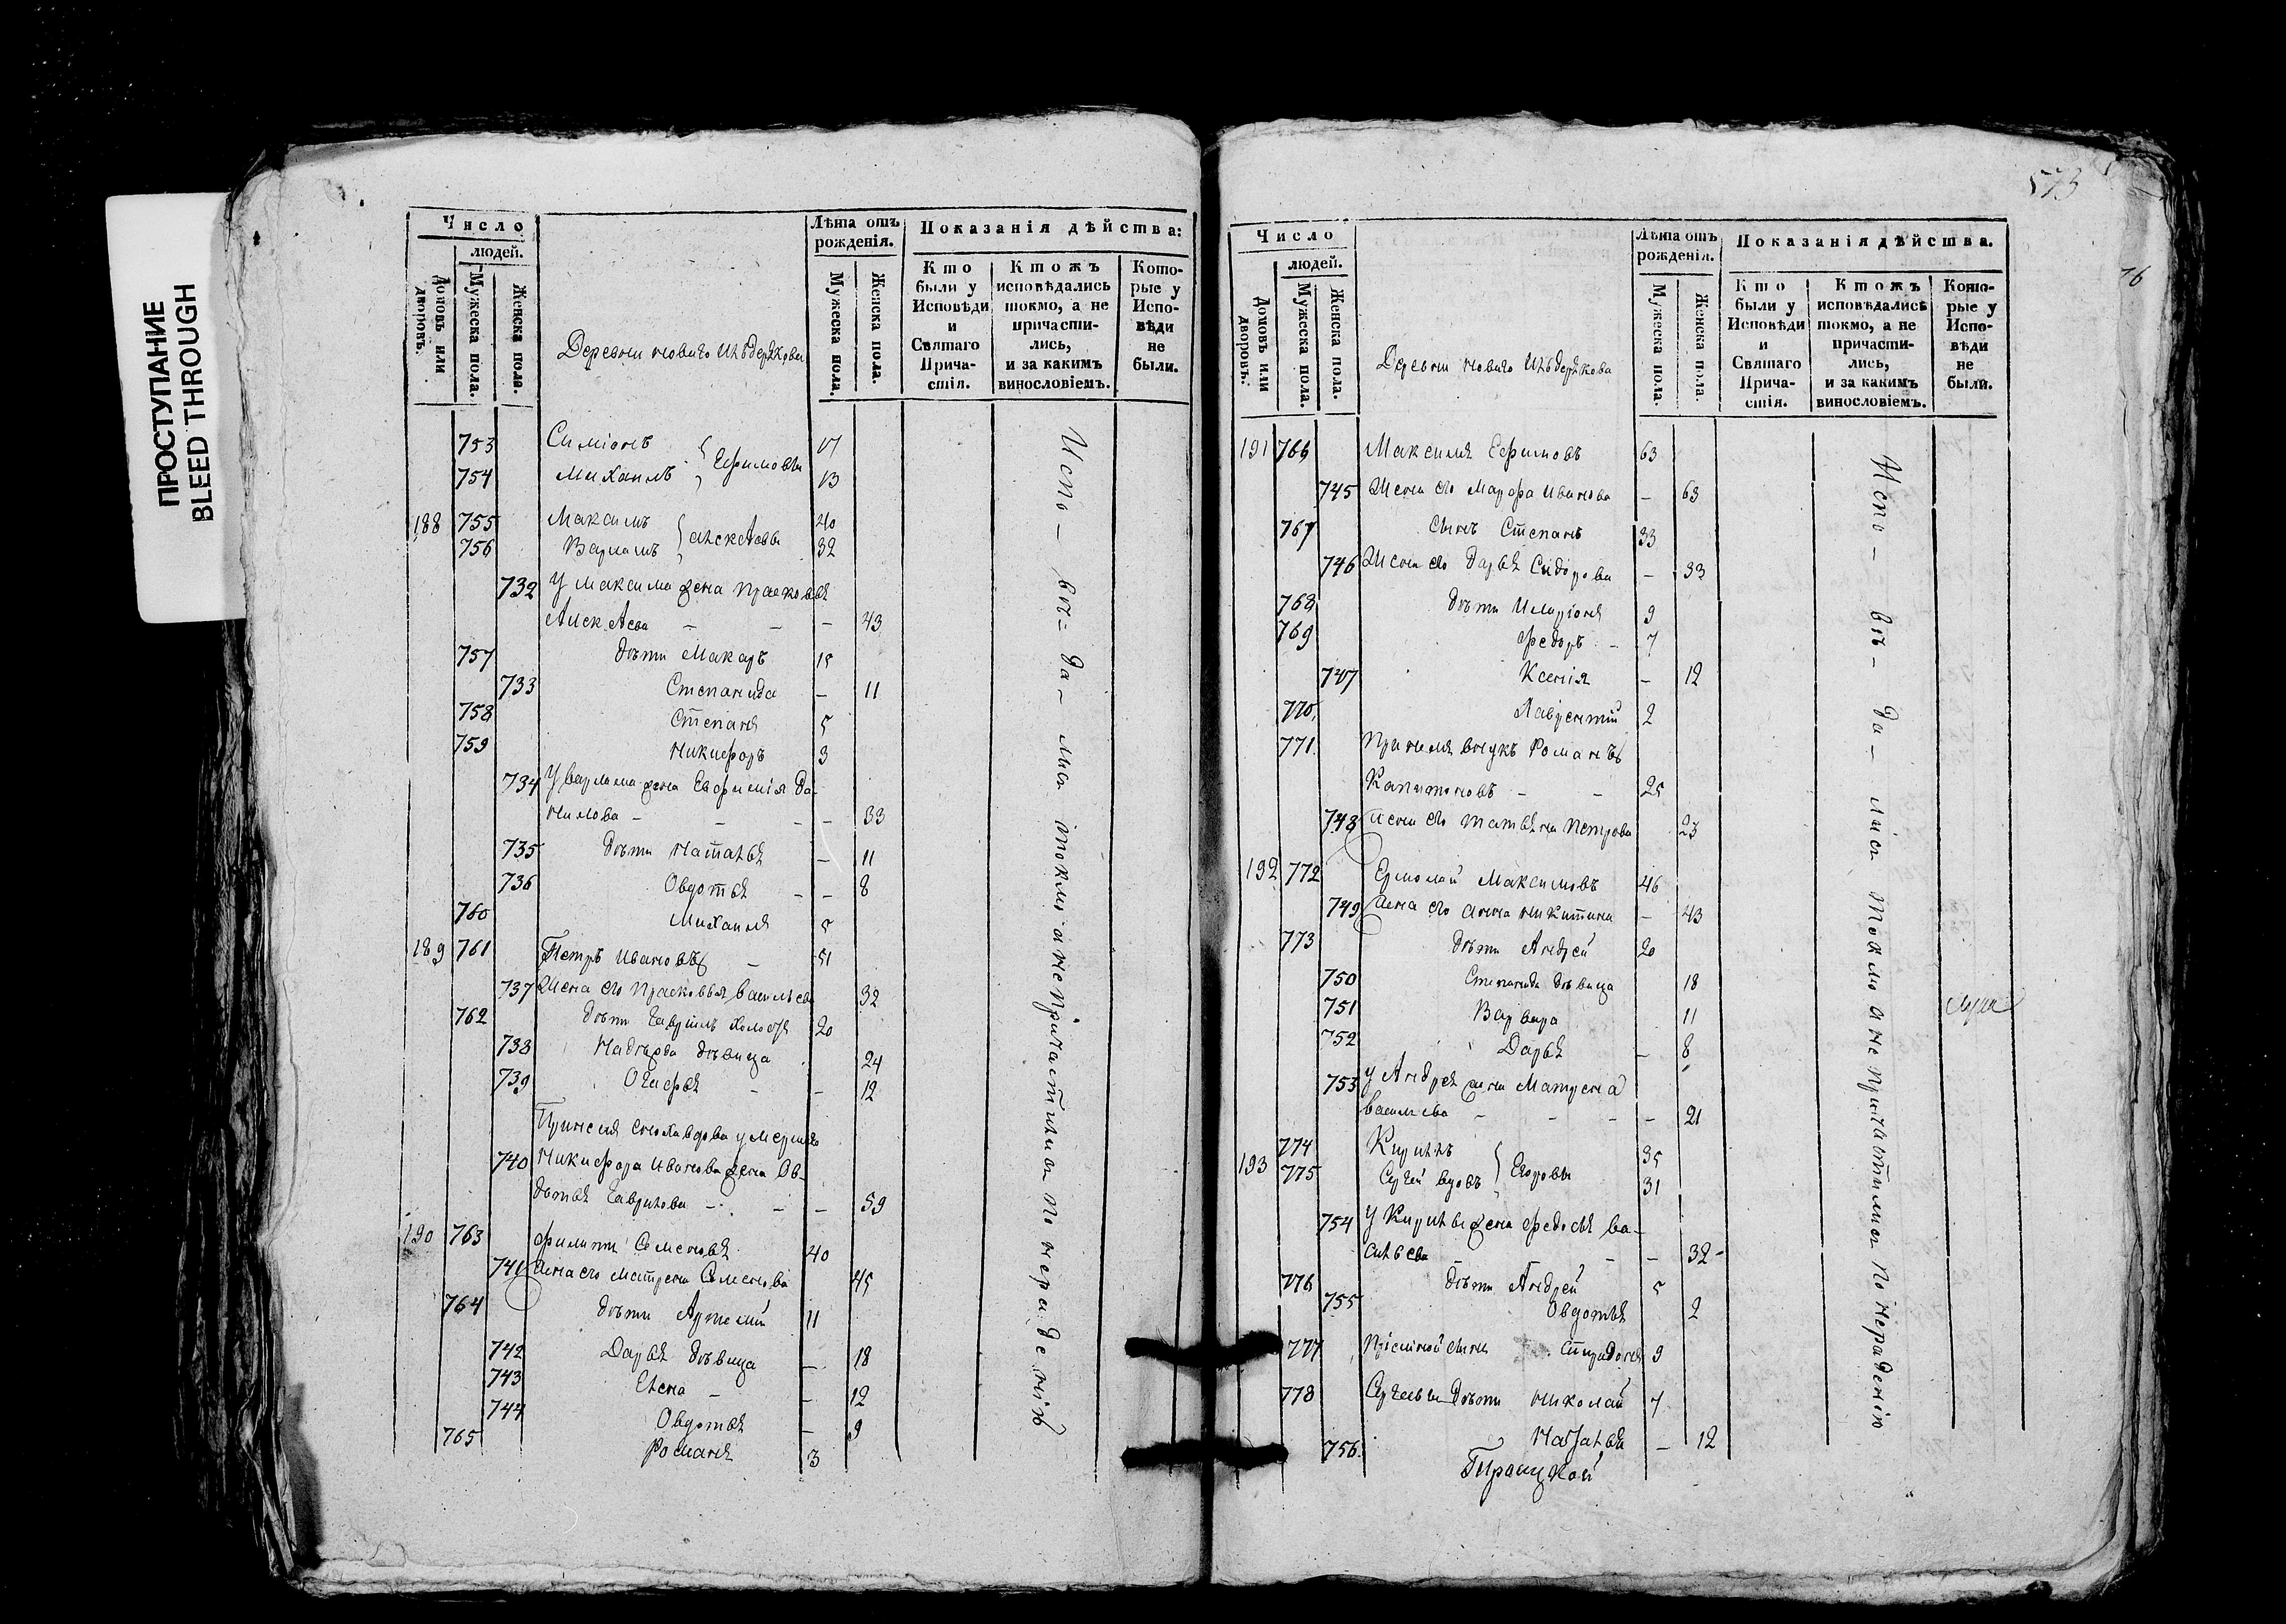 ПРОСТУПАНИЕ
BLEED THROUGH
Число
людей.
Домовъ или дворовъ.
Мужеска пола.
Женска пола.
Деревни новаго
Лѣта отъ рожденія.
Мужеска пола.
Женска пола.
Показанія дѣйства:
Кто были у Исповѣди и Святаго Прича-стія.
Ктожъ исповѣдались токмо, а не причасти-лись, и за какимъ винословіемъ.
Кото-рые у Испо-вѣди не были.
753 Симіонъ 17
754 Михаилъ } Ефимовы 13
188 755 Максимъ 40
756 Варламъ } Алексѣевы 32
732 У Максима жена Прасковья
Алексѣева - - - 43
757 дѣти Макаръ 15
733 Степанида - 11
758 Степанъ 5
759 Никифоръ 3
734 У варлама жена Евфимія Да-
нилова - - - - 33
735 дѣти Наталья - 11
736 Овдотья - - 8
760 Михаилъ 5
189 761 Петръ Ивановъ - 51
737 Жена его Прасковья васильева 32
762 дѣти Гаврилъ холостъ 20
738 дѣвица 24
739 - - 12
вдова умершаго
740 Никифора Иванова жена Ов-
дотья Гаврилова - - - 59
190 763 Филиппъ Семеновъ 40
741 Жена его Матрена Семенова 45
764 дѣти Артемій 11
742 Дарья дѣвица - 18
743 Елена - - 12
744 Овдотья - 9
765 Романъ 3
Испо - вѣ - да - лись токмо а не причастились по нерадѣнію
573
76
Число
людей.
Домовъ или дворовъ.
Мужеска пола.
Женска пола.
Деревни новаго
Лѣта отъ рожденія.
Мужеска пола.
Женска пола.
Показанія дѣйства.
Кто были у Исповѣди и Святаго Прича-стія.
Ктожъ исповѣдались токмо, а не причасти-лись, и за какимъ винословіемъ.
Кото-рые у Испо-вѣди не были.
191 766 Максимъ Ефимовъ 63
745 Жена его Марфа Иванова - 63
767 сынъ Степанъ 33
746 Жена его Дарья Сидорова - 33
768 дѣти Иларіонъ 9
769 Федоръ - 7
747 Ксенія - 12
770 Лаврентій 2
771 внукъ Романъ
Капитоновъ - - 25
748 жена его Татьяна Петрова 23
192 772 Ермолай Максимовъ 46
749 жена его Анна Никитина - 43
773 дѣти Андрей 20
750 Степанида дѣвица 18
751 Варвара 11
752 Дарья - 8
753 у Андрея жена Матрена
васильева - - - - 21
774 Кирилъ 35
193 775 Сергей вдовъ } Егоровы 31
754 У Кирилы жена Федосья ва-
сильева - - 32
776 дѣти Андрей 5
755 Овдотья 2
777 Пріемной сынъ Спиридонъ 9
778 Сергеевы дѣти Николай 7
756 Наталья - 12
Испо - вѣ - да - лись токмо а не причастились по нерадѣнію